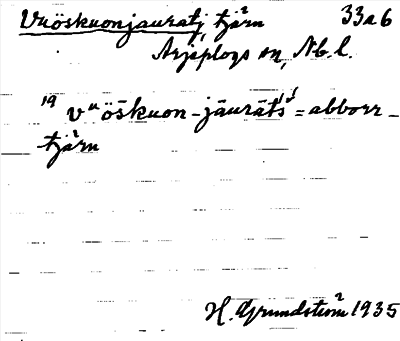 Vuöskuonjauratj, tjärn 33a6
Arjeplogs sn, Nb. l.
19 vᵘöškuon-jāurāts' = abborr-
tjärn
H. Grundström 1935